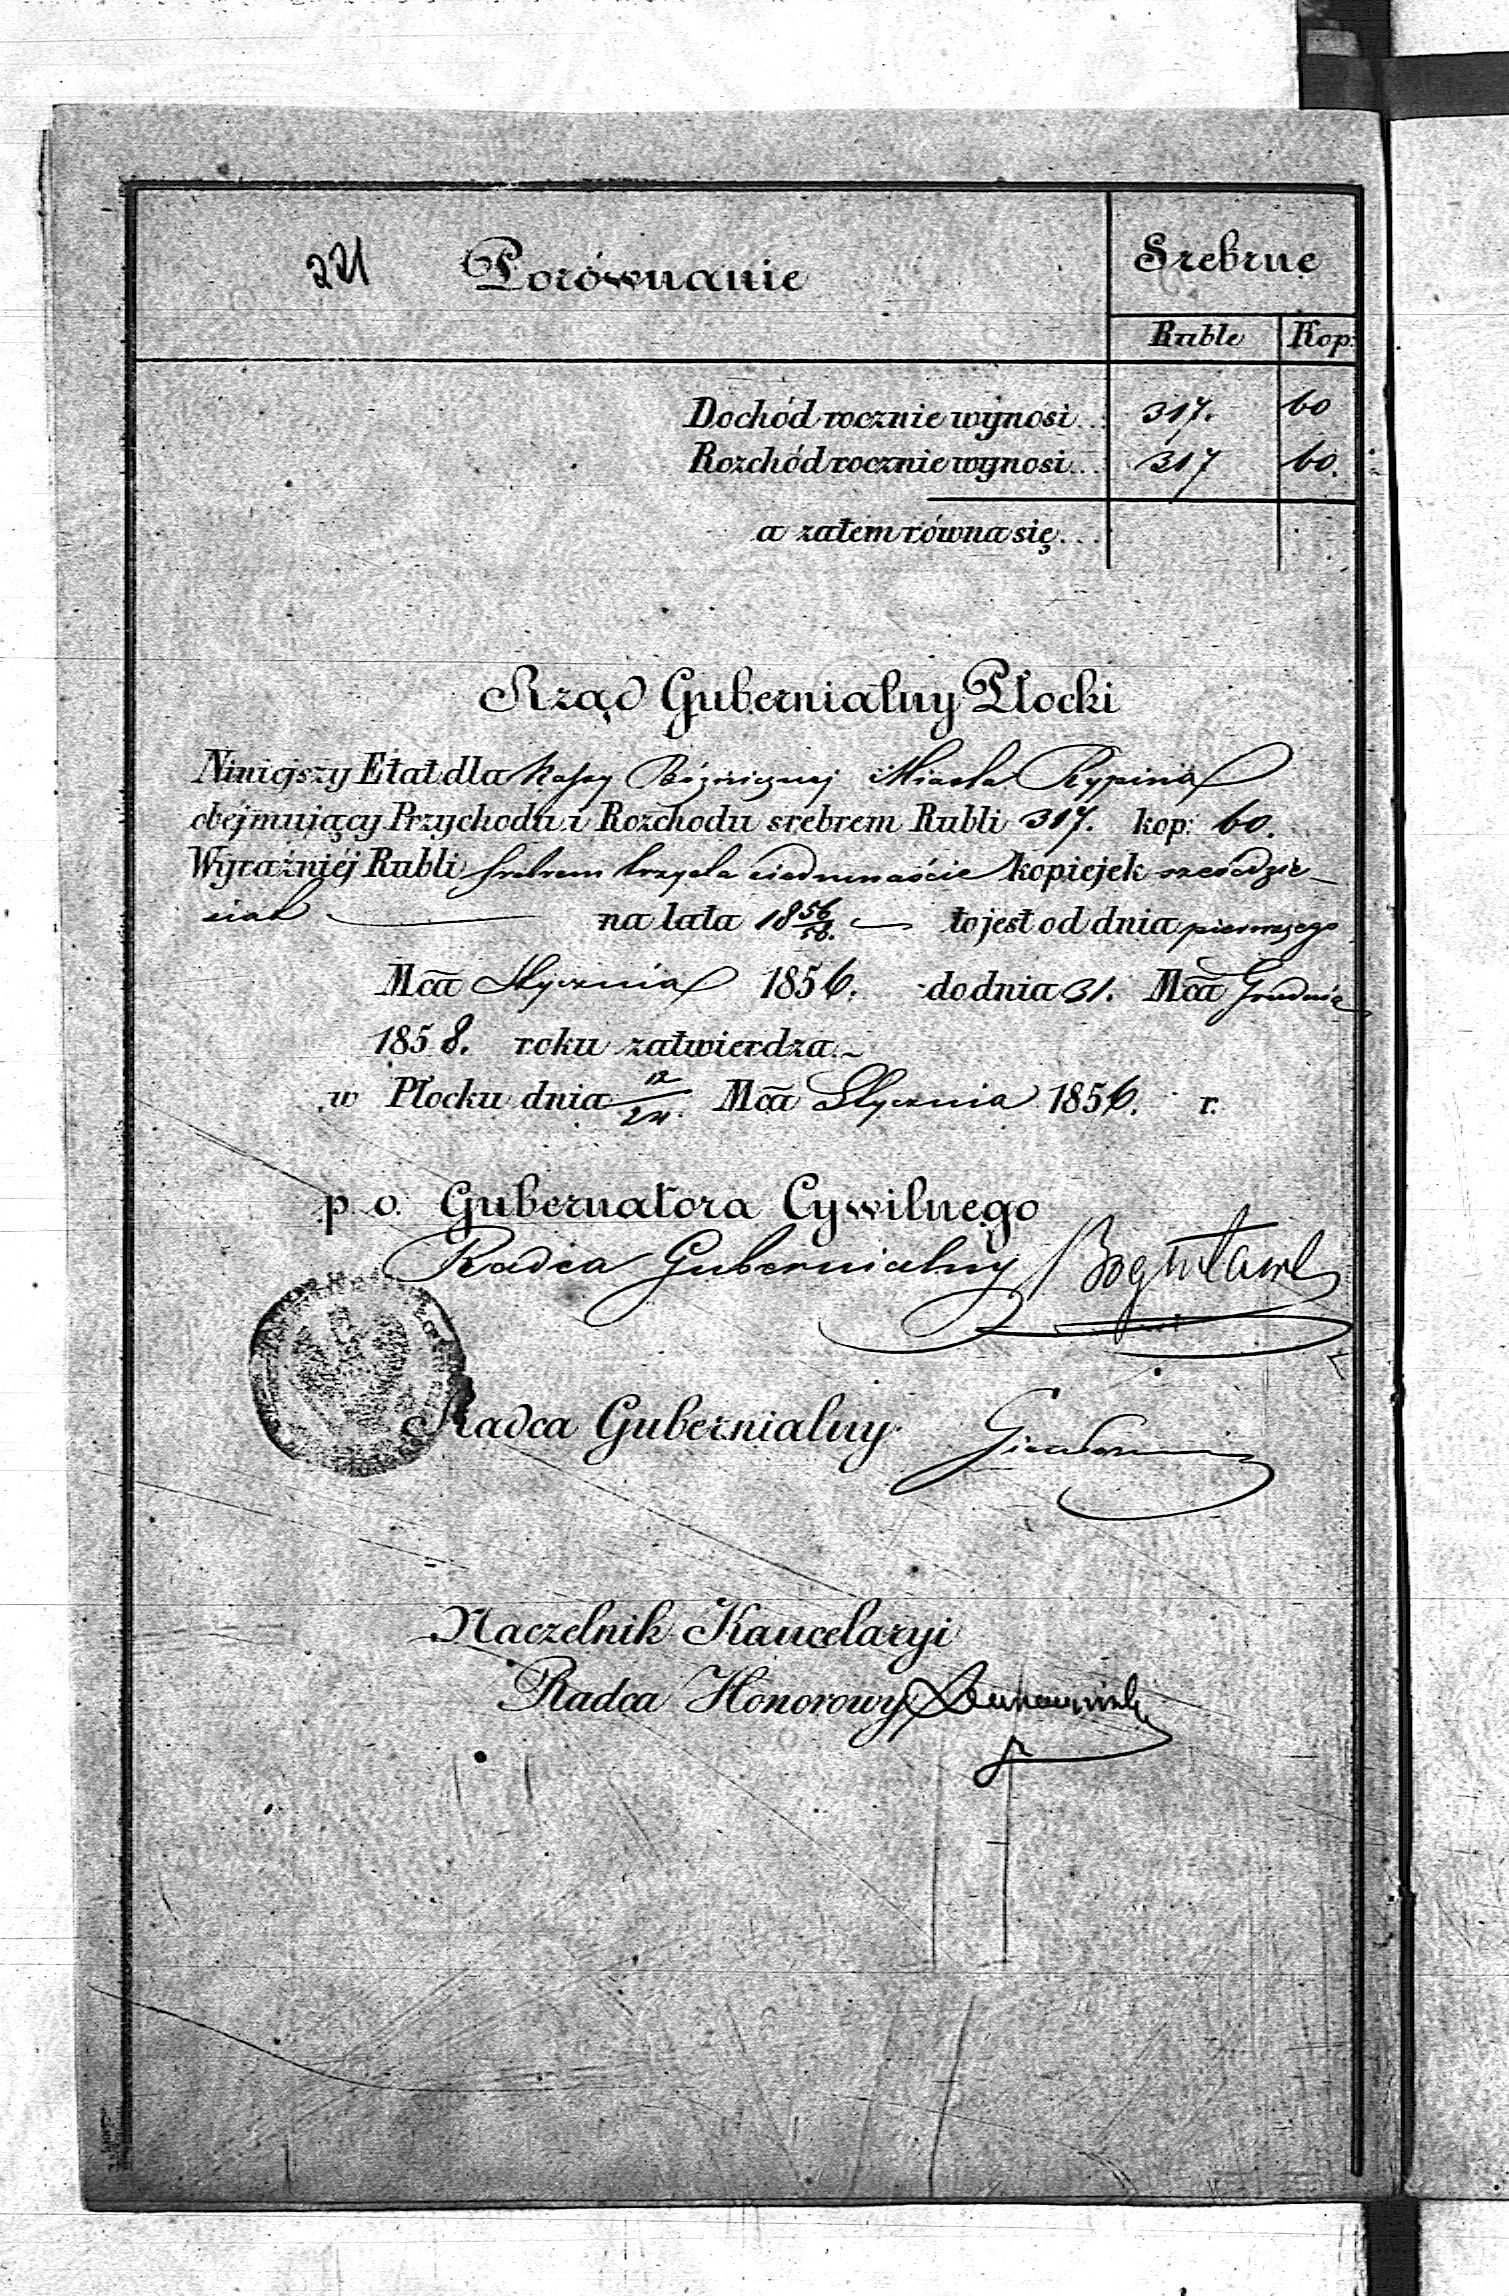 221 Porównanie
Srebrne
Ruble Kop:
Dochód rocznie wynosi... 317. 60
Rozchód rocznie wynosi... 317 60.
a zatem równa się...
Rząd Gubernialny Płocki
Niniejszy Etat dla Kassy Bóżnicznej Miasta Rypina
obejmujący Przychodu i Rozchodu srebrem Rubli 317. kop: 60.
Wyraźniéj Rubli srebrem trzysta siedmnaście kopiejek sześćdzie-
siąt na lata 18 56/58. to jest od dnia pierwszego
Mca Stycznia 1856. do dnia 31. Mca Grudnia
1858. roku zatwierdza.
w Płocku dnia 12/24. Mca Stycznia 1856. r.
p. o. Gubernatora Cywilnego
Radca Gubernialny
Radca Gubernialny
Naczelnik Kancelaryi
Radca Honorowy